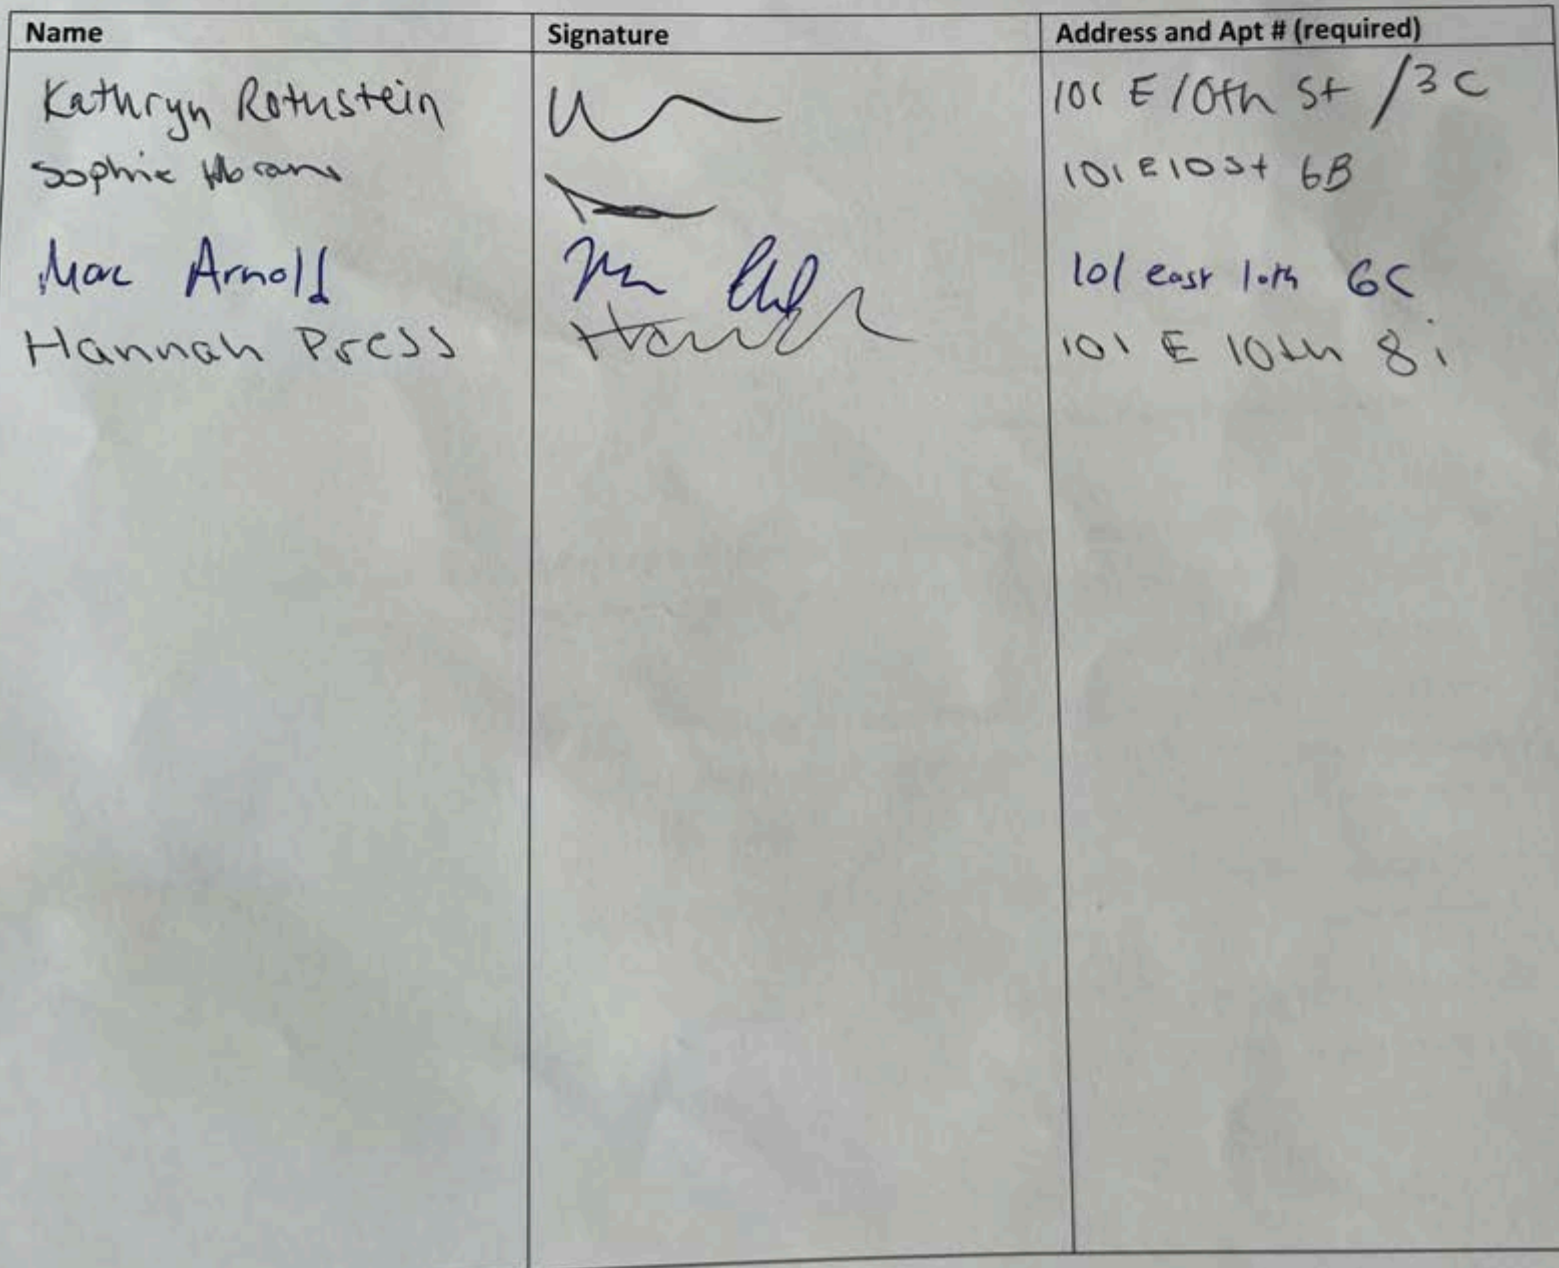 Name Signature Address and Apt # (required)
Kathryn Rothstein 101 E 10th St /3C
Sophie 101 E 10 St 6B
Marc Arnold 101 east 10th 6C
Hannah Press Hannah 101 E 10th 8i